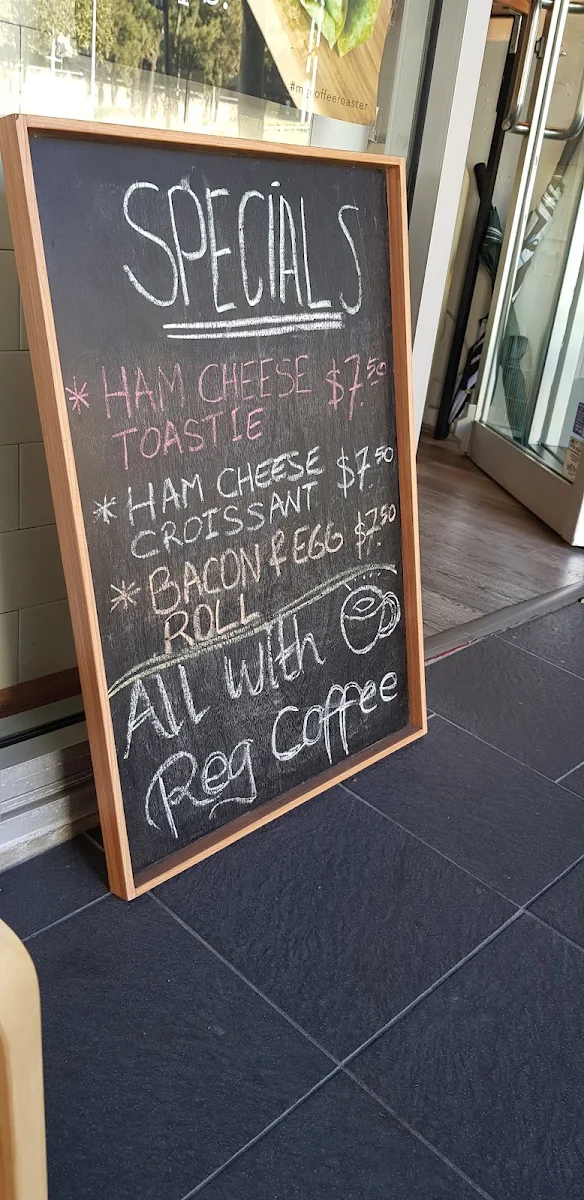 SPECIALS
* HAM CHEESE $7.50
TOASTIE
* HAM CHEESE $7.50
CROISSANT
* BACON & EGG $7.50
ROLL
All with
Reg Coffee